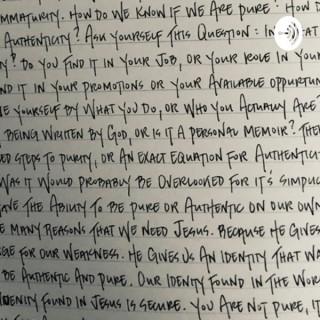 MMATURITY. HOW DO WE KNOW IF WE ARE PURE? HOW D
AUTHENTICITY? ASK YOURSELF THIS QUESTION: IN
Y? DO YOU FIND IT IN YOUR JOB, OR YOUR ROLE IN YOUR
ND IT IN YOUR PROMOTIONS OR YOUR AVAILABLE OPPURTUN
E YOURSELF BY WHAT YOU DO, OR WHO YOU ACTUALLY ARE?
BEING WRITTEN BY GOD, OR IS IT A PERSONAL MEMOIR? THE
ED STEPS TO PURITY, OR AN EXACT EQUATION FOR AUTHENTICI
WAS IT WOULD PROBABLY BE OVERLOOKED FOR IT'S SIMPLIC
AVE THE ABILITY TO BE PURE OR AUTHENTIC ON OUR OWN
E MANY REASONS THAT WE NEED JESUS. BECAUSE HE GIVES
GE FOR OUR WEAKNESS. HE GIVES US AN IDENTITY THAT WA
BE AUTHENTIC AND PURE. OUR IDENTITY FOUND IN THE WOR
IDENTITY FOUND IN JESUS IS SECURE. YOU ARE NOT PURE, IT